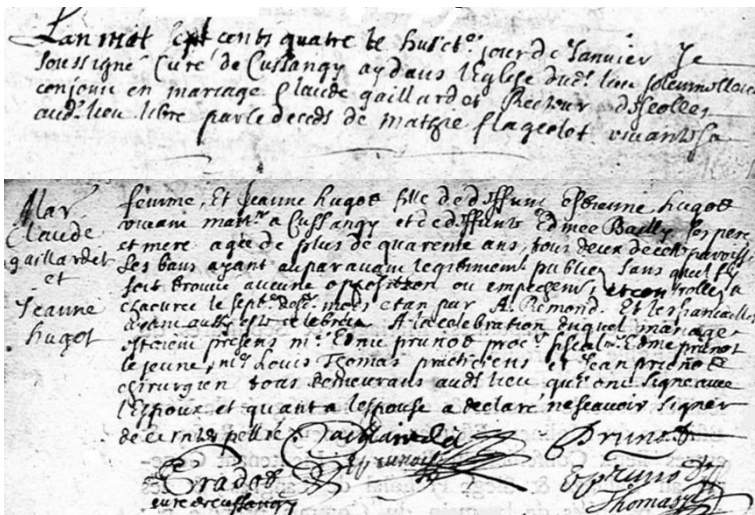 Lan mil sept cents quatre le huict.e jour de Janvier Je
soussigné Curé de Cussangy ay dans l'Eglise dud.t lieu solemnellem.t
conjoin en mariage Claude gaillardet Recteur d'escolles
aud.t lieu libre par le deceds de flageolot vivante sa
Mar
Claude
gaillardet
et
Jeanne
hugot
femme, Et Jeanne hugot fille de deffunt Estienne hugot
vivant a Cussangy et de deffunte Edmee Bailly ses pere
et mere agee de plus de quarente ans, tous deux de cette parroisse
Les bans ayant auparavant legitimement publiez sans quel
soit trouvé aucune opposition ou empeschem.t et controllez a
chaource le sept.e desd. mois et an par A. Remond. Et les fiancailles
ayant aussy esté celebreés A la celebration duquel mariage
estoient presens m.e Edme prunot proc.r fiscal m.e Edme prunot
le jeune, m.e Louis Thomas practiciens et Jean prunot
chirurgien tous demeurans aud.t lieu qui ont signe avec
l'Espoux et quant a lespouse a declaré ne scavoir signer
de ce interpelleé Gaillardet Prunot
Prunot
curé de cussangy
Thomas